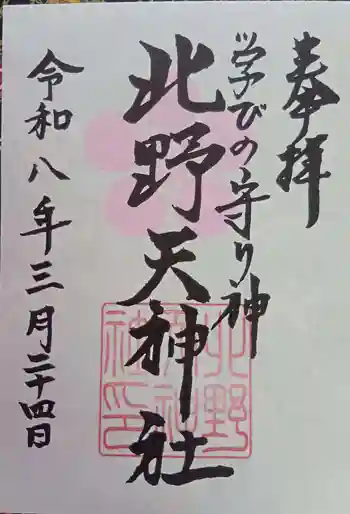 奉拝
学びの守り神
北野天神社
令和八年三月二十四日
北野天神社印